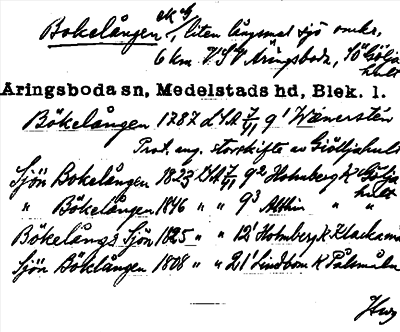 Bokelången, liten långsmal sjö omkr.
6 km V.S.V Åringsboda, SO Göljahult
Åringsboda sn, Medelstads hd, Blek. l.
Bökelången 1787 LSA 7/VI 9¹ Wämerstén
Prot. ang. storskifte av Giöljahult
Sjön Bokelången 1823 LSA 7/VI 9² Holmberg K Göljahult
" Bökelången 1846 " " 9³ Althin " "
Bökelångs Sjön 1825 " " 12¹ Holmberg K Klackamåla
Sjön Bökelången 1808 " " 21¹ Lindbom K Pålamåla